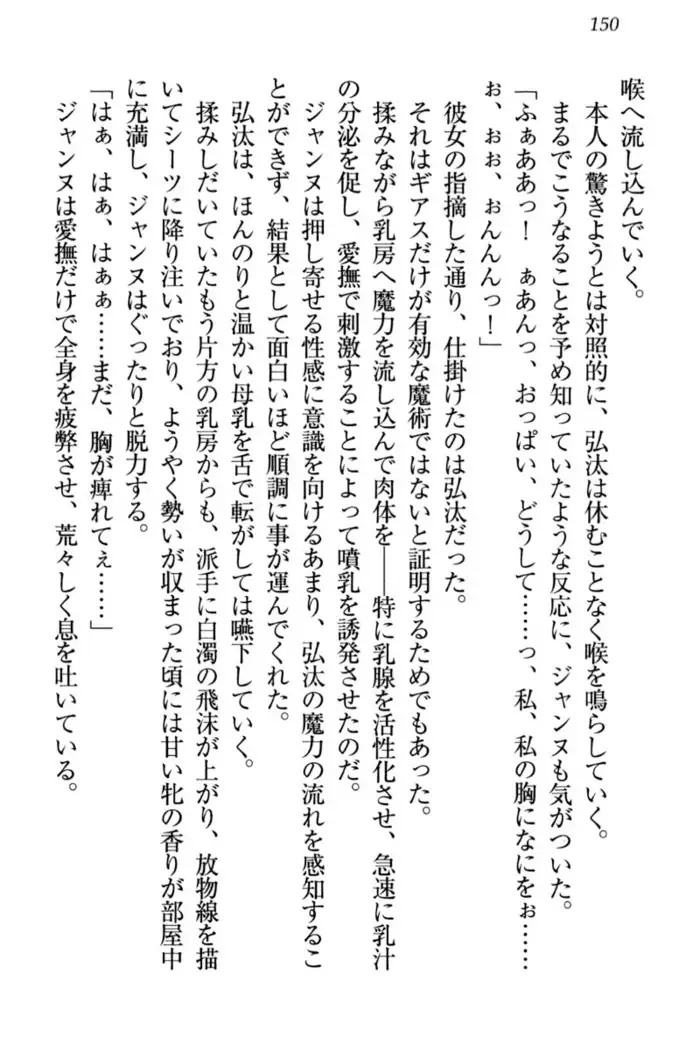 150
喉へ流し込んでいく。
本人の驚きようとは対照的に、弘汰は休むことなく喉を鳴らしていく。
まるでこうなることを予め知っていたような反応に、ジャンヌも気がついた。
「ふぁああっ！　ぁあんっ、おっぱい、どうして……っ、私、私の胸になにをぉ……
ぉ、ぉぉ、ぉんんんっ！」
彼女の指摘した通り、仕掛けたのは弘汰だった。
それはギアスだけが有効な魔術ではないと証明するためでもあった。
揉みながら乳房へ魔力を流し込んで肉体を――特に乳腺を活性化させ、急速に乳汁
の分泌を促し、愛撫で刺激することによって噴乳を誘発させたのだ。
ジャンヌは押し寄せる性感に意識を向けるあまり、弘汰の魔力の流れを感知するこ
とができず、結果として面白いほど順調に事が運んでくれた。
弘汰は、ほんのりと温かい母乳を舌で転がしては嚥下していく。
揉みしだいていたもう片方の乳房からも、派手に白濁の飛沫が上がり、放物線を描
いてシーツに降り注いでおり、ようやく勢いが収まった頃には甘い牝の香りが部屋中
に充満し、ジャンヌはぐったりと脱力する。
「はぁ、はぁ、はぁぁ……まだ、胸が痺れてぇ……」
ジャンヌは愛撫だけで全身を疲弊させ、荒々しく息を吐いている。